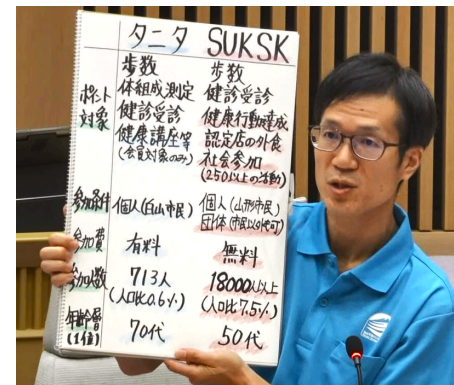 タニタ SUKSK
ポイント対象
歩数
体組成測定
健診受診
健康講座等
(会員対象のみ)
歩数
健診受診
健康行動達成
認定店の外食
社会参加
(250以上の活動)
参加条件 個人(白山市民) 個人(山形市民)
団体(市民以外も可)
参加費 有料 無料
参加人数 713人 18000人以上
(人口比0.6%) (人口比7.5%)
年齢層
(1位) 70代 50代